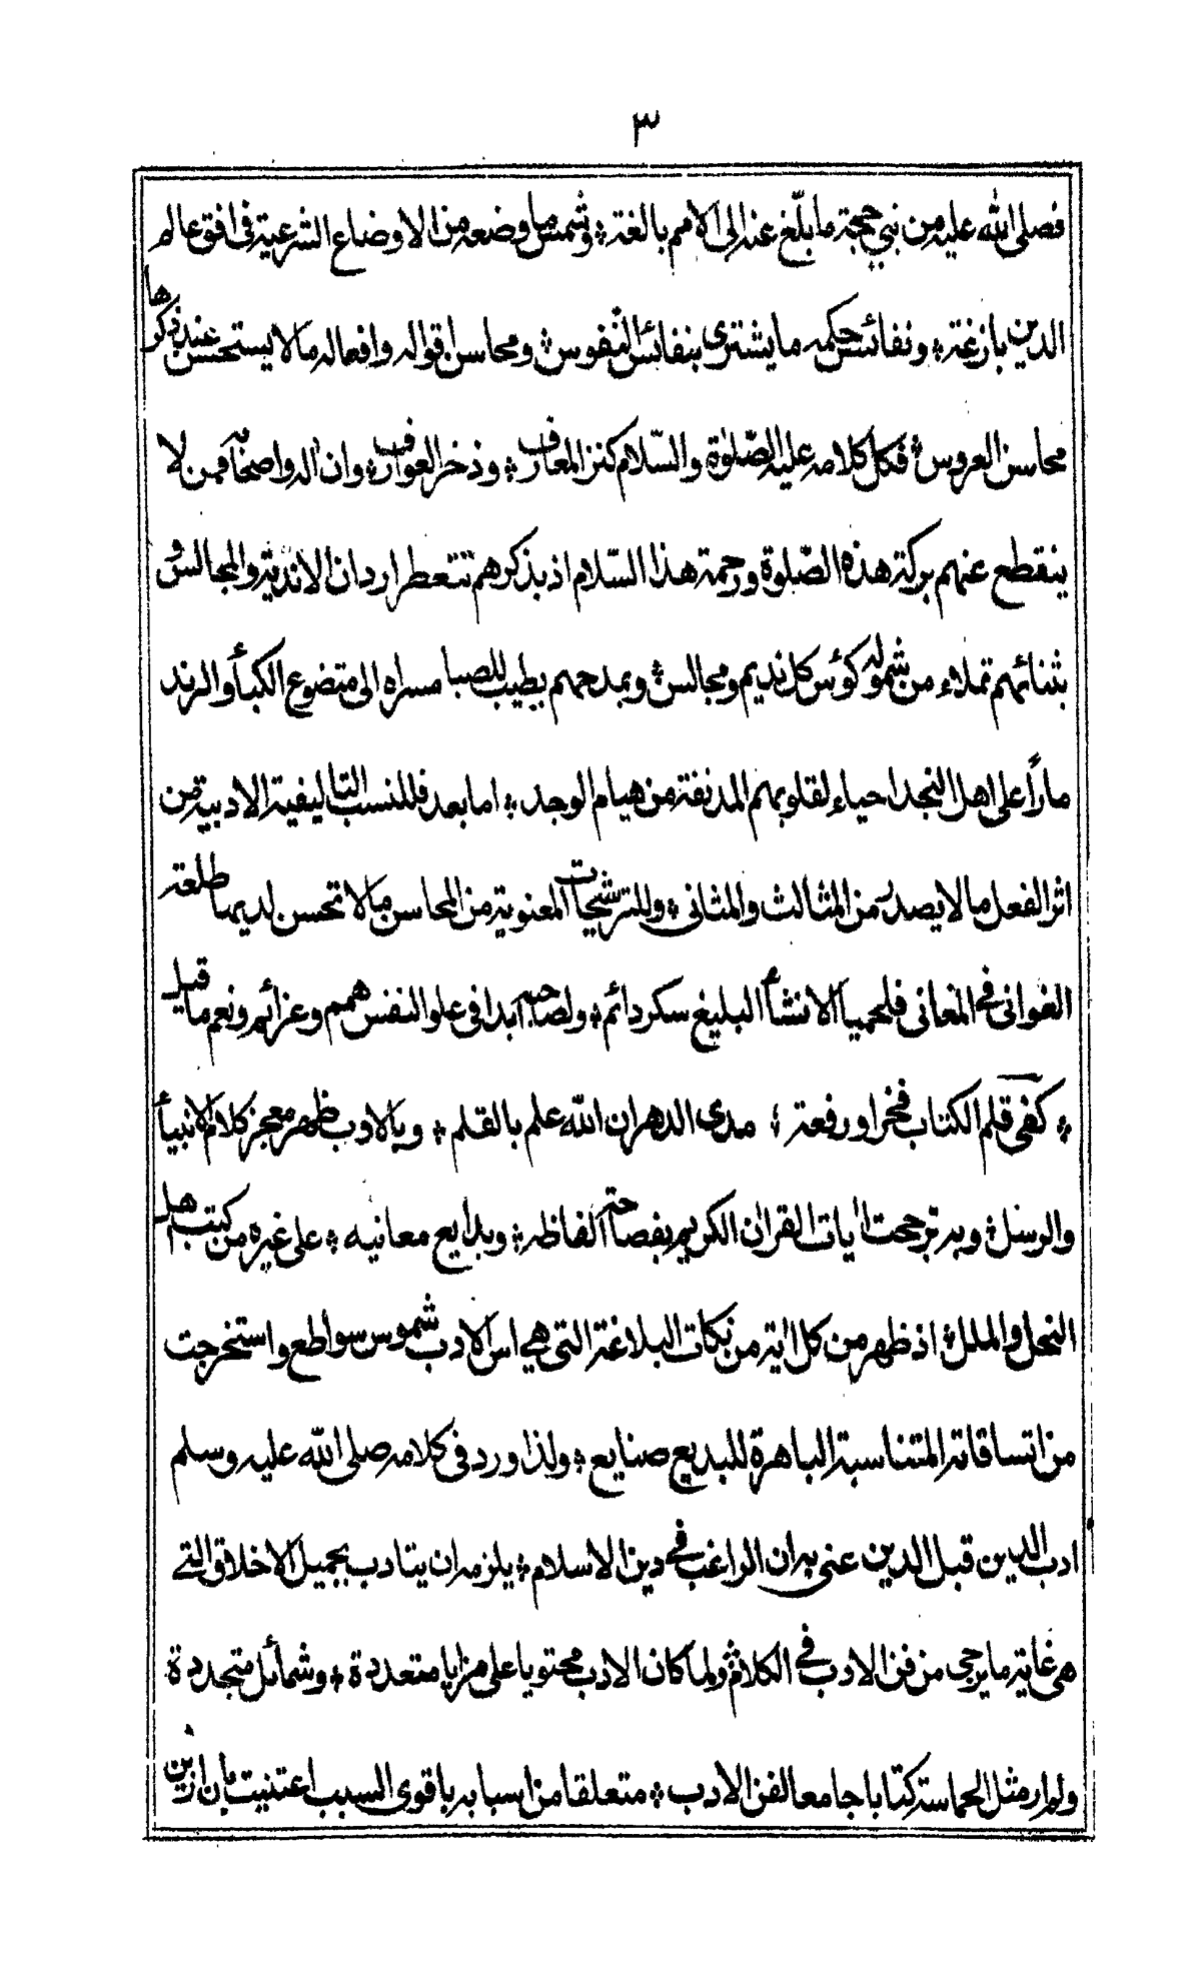 ٣
فصلى الله عليه من نبي حجته ما بلّغ عنه الى الامم بالغة ؞ وشمس ما وضعه من الاوضاع الشرعية فى افق عالم
الدين بازغة ؞ ونفائس حكمه ما يشترى بنفائس النفوس ؞ ومحاسن اقواله وافعاله ما لا يستحسن عند ذكرها
محاسن العروس ؞ فكل كلامه عليه الصّلوٰة والسّلام كنز المعارف ؞ وذخر العوارف ؞ وان اٰله واصحابه ممن لا
ينقطع عنهم بركة هذه الصّلوة ورحمة هذا السّلام اذ بذكرهم تتعطر اردان الاندية والمجالس و
بثنائهم تملاء من شموله كوئس كل نديم ومجالس ؞ وبمدحهم يطيب للصبا مسراه الى متضوع الكبأ والرند
مارًا على اهل النجد احياء لقلوبهم المدنفة من هيام الوجد ؞ اما بعد فللنسب التاليفية الادبية من
اثر الفعل ما لا يصدر من المثالث والمثانى ؞ وللترشيحات المعنوية من المحاسن ما لا تحسن لديها طلعة
الغوانى فى المغانى فلحميا الانشأ البليغ سكر دائم ؞ ولصاحبه ابدا فى علو النفس همم وعزائم ونعم ما قيل
؞ كفى قلم الكتاب فخرا ورفعة ؞ مدى الدهر ان الله علم بالقلم ؞ وبالادب ظهر معجز كلام الانبيأ
والرسل ؞ وبه ترجحت اٰيات القراٰن الكريم بفصاحة الفاظه ؞ وبدايع معانيه ؞ على غيره من كتب اهل
النحل والملل ؞ اذ ظهر من كل اٰية من نكات البلاغة التى هي اس الادب شموس سواطع واستخرجت
من اتساقاته المتناسبة الباهرة للبديع صنايع ؞ ولذا ورد فى كلامه صلى الله عليه وسلم
ادب الدين قبل الدين عنى به ان الراغب فى دين الاسلام ؞ يلزمه ان يتادب بجميل الاخلاق التے
هى غاية ما يرجى من فن الادب فى الكلام ؞ ولما كان الادب محتويا على مزايا متعددة ؞ وشمائل متجددة
ولم ار مثل الحماسة كتابا جامعا لفن الادب ؞ متعلقا من اسبابه باقوى السبب اعتنيت بان ازين